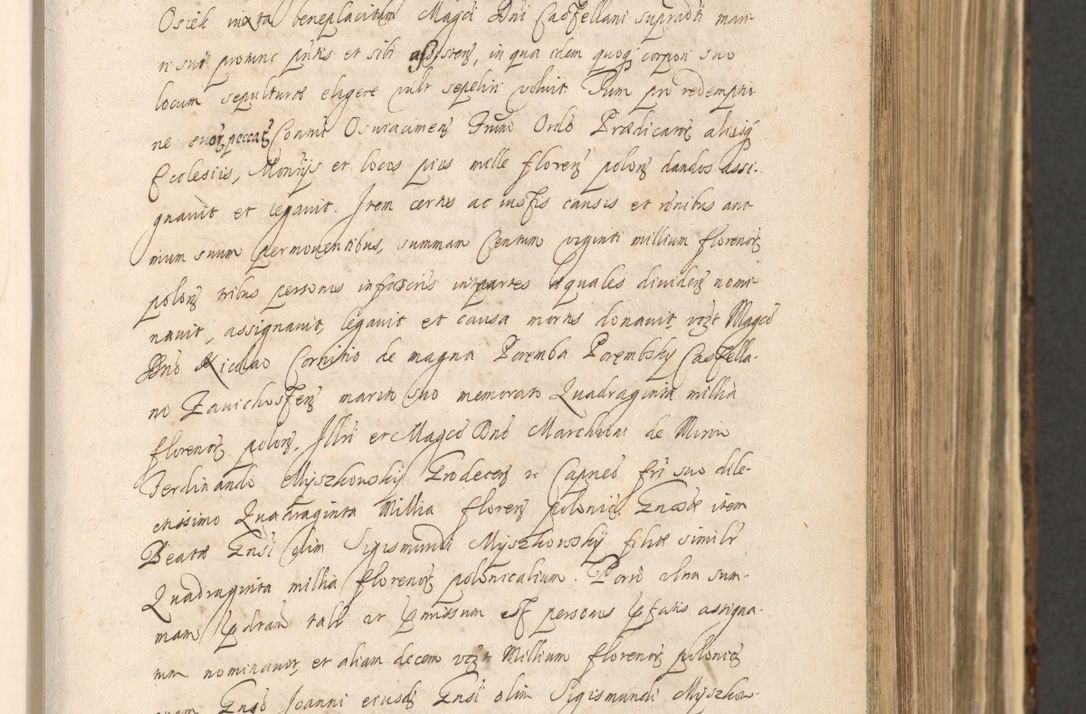 Osiek iuxta beneplacitum Magci Dni Castellani supradti mari
ti sui protunc pntis et sibi assisten, in qua idem quoq corpori suo
locum sepulturæ eligere vult sepeliri voluit. Tum pro redemptio
ne suor peccat Conui Osuiacimen Frum Ordis Prædicator alijsq
Ecclesiis, Monrijs et locis pios mille floren polon dandos assi-
gnauit et legauit. Item certis ac iustis causis et rōnibus ani
mum suum permouentibus, summam Centum viginti millium florenor
polon tribus personis infascris in tres partes æquales dividen nomi
nauit, assignauit, legauit et causa mortis donauit, vizt Magco
Dno Nicolao Corticio de magna Poremba Porembsky Castella-
no Zauichosten marito suo memorato Quadraginta millia
florenor polon, Illri et Magco Dno Marchioni de Mirow
Ferdinando Myszkowsky Grodecen Capneo fri suo dile-
ctissimo Quadraginta Millia floren polonic, Gnosæ item
Beatæ Gnsi olim Sigismundi Myszkowsky filiæ similr
Quadraginta millia florenor polonicalium. Porro olim sum-
mam pdtam tali ut pmissum est personis pfatis assigna-
tam nominauit, et aliam decem vizt Millium florenor polonic
quam Gnso Joanni eiusd Gnsi olim Sigismundi Myszkow-